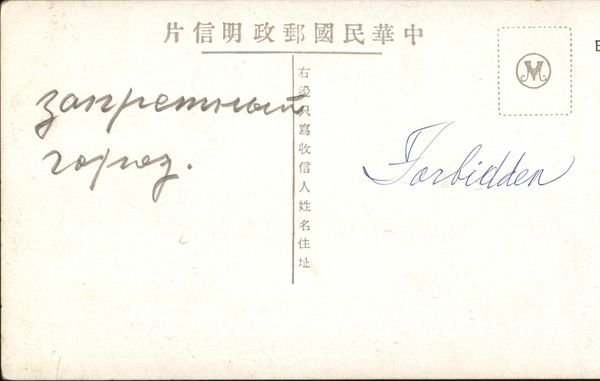 片信明政郵國民華中
右邊只寫收信人姓名住址
запретный
город.
Forbidden
M